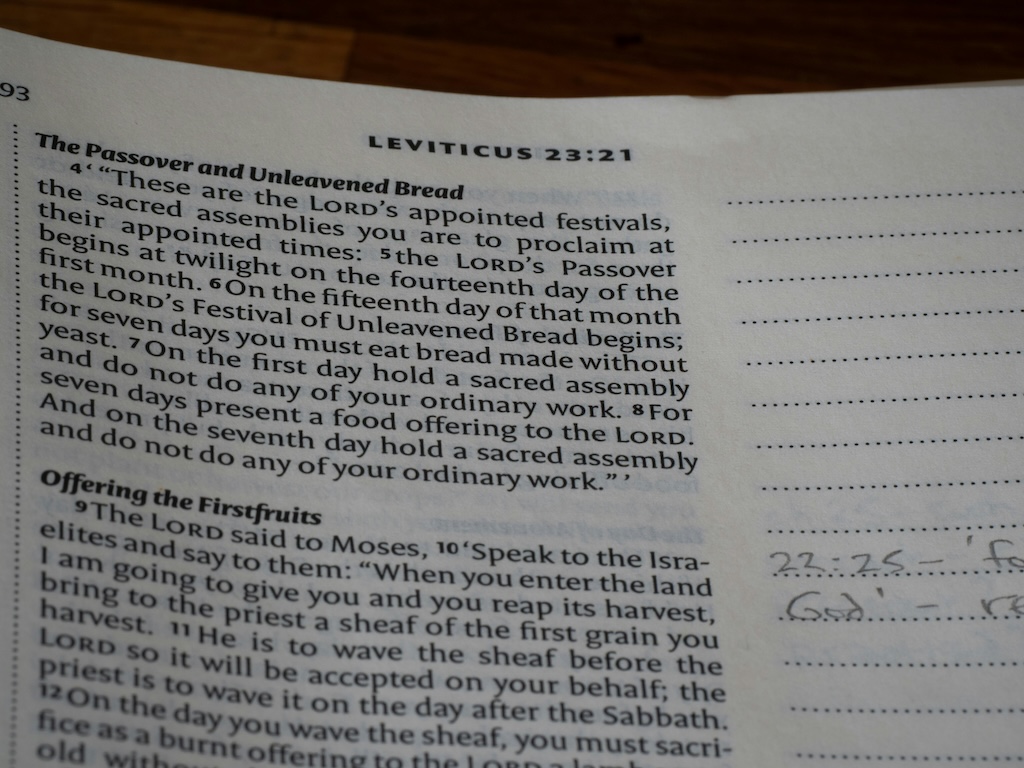 93
LEVITICUS 23:21
The Passover and Unleavened Bread
4 ‘ “These are the LORD’s appointed festivals,
the sacred assemblies you are to proclaim at
their appointed times: 5 the LORD’s Passover
begins at twilight on the fourteenth day of the
first month. 6 On the fifteenth day of that month
the LORD’s Festival of Unleavened Bread begins;
for seven days you must eat bread made without
yeast. 7 On the first day hold a sacred assembly
and do not do any of your ordinary work. 8 For
seven days present a food offering to the LORD.
And on the seventh day hold a sacred assembly
and do not do any of your ordinary work.” ’
Offering the Firstfruits
9 The LORD said to Moses, 10 ‘Speak to the Isra-
elites and say to them: “When you enter the land
I am going to give you and you reap its harvest,
bring to the priest a sheaf of the first grain you
harvest. 11 He is to wave the sheaf before the
LORD so it will be accepted on your behalf; the
priest is to wave it on the day after the Sabbath.
12 On the day you wave the sheaf, you must sacri-
fice as a burnt offering to the LORD a lamb
old
22:25 – ‘fo
God’ – re